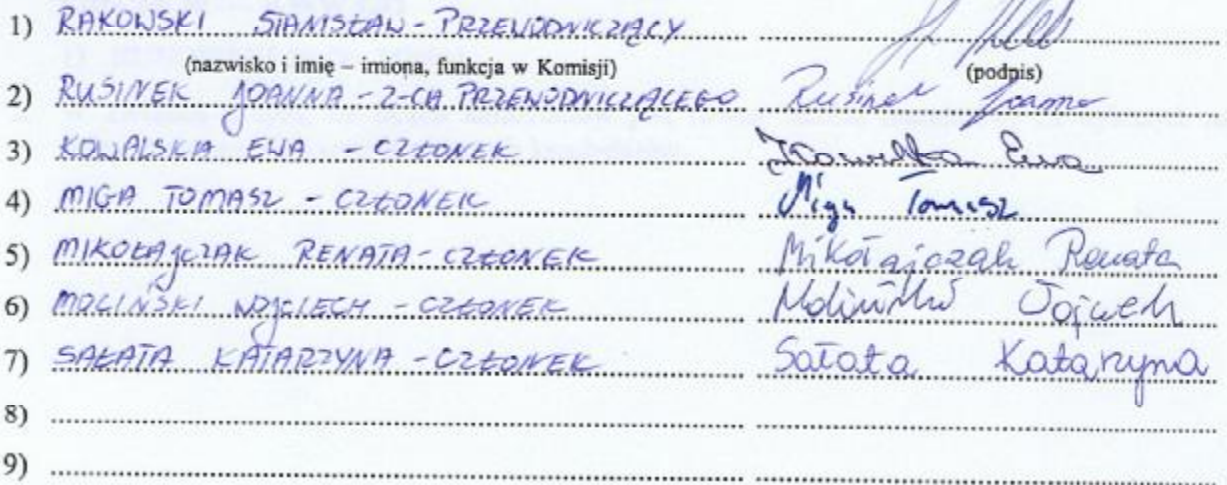 1) RAKOWSKI STANISŁAW - PRZEWODNICZĄCY
(nazwisko i imię – imiona, funkcja w Komisji) (podpis)
2) RUSINEK JOANNA - Z-CA PRZEWODNICZĄCEGO Rusinek Joanna
3) KOWALSKA EWA - CZŁONEK Kowalska Ewa
4) MIGA TOMASZ - CZŁONEK Miga Tomasz
5) MIKOŁAJCZAK RENATA - CZŁONEK Mikołajczak Renata
6) MOLIŃSKI WOJCIECH - CZŁONEK Moliński Wojciech
7) SAŁATA KATARZYNA - CZŁONEK Sałata Katarzyna
8)
9)